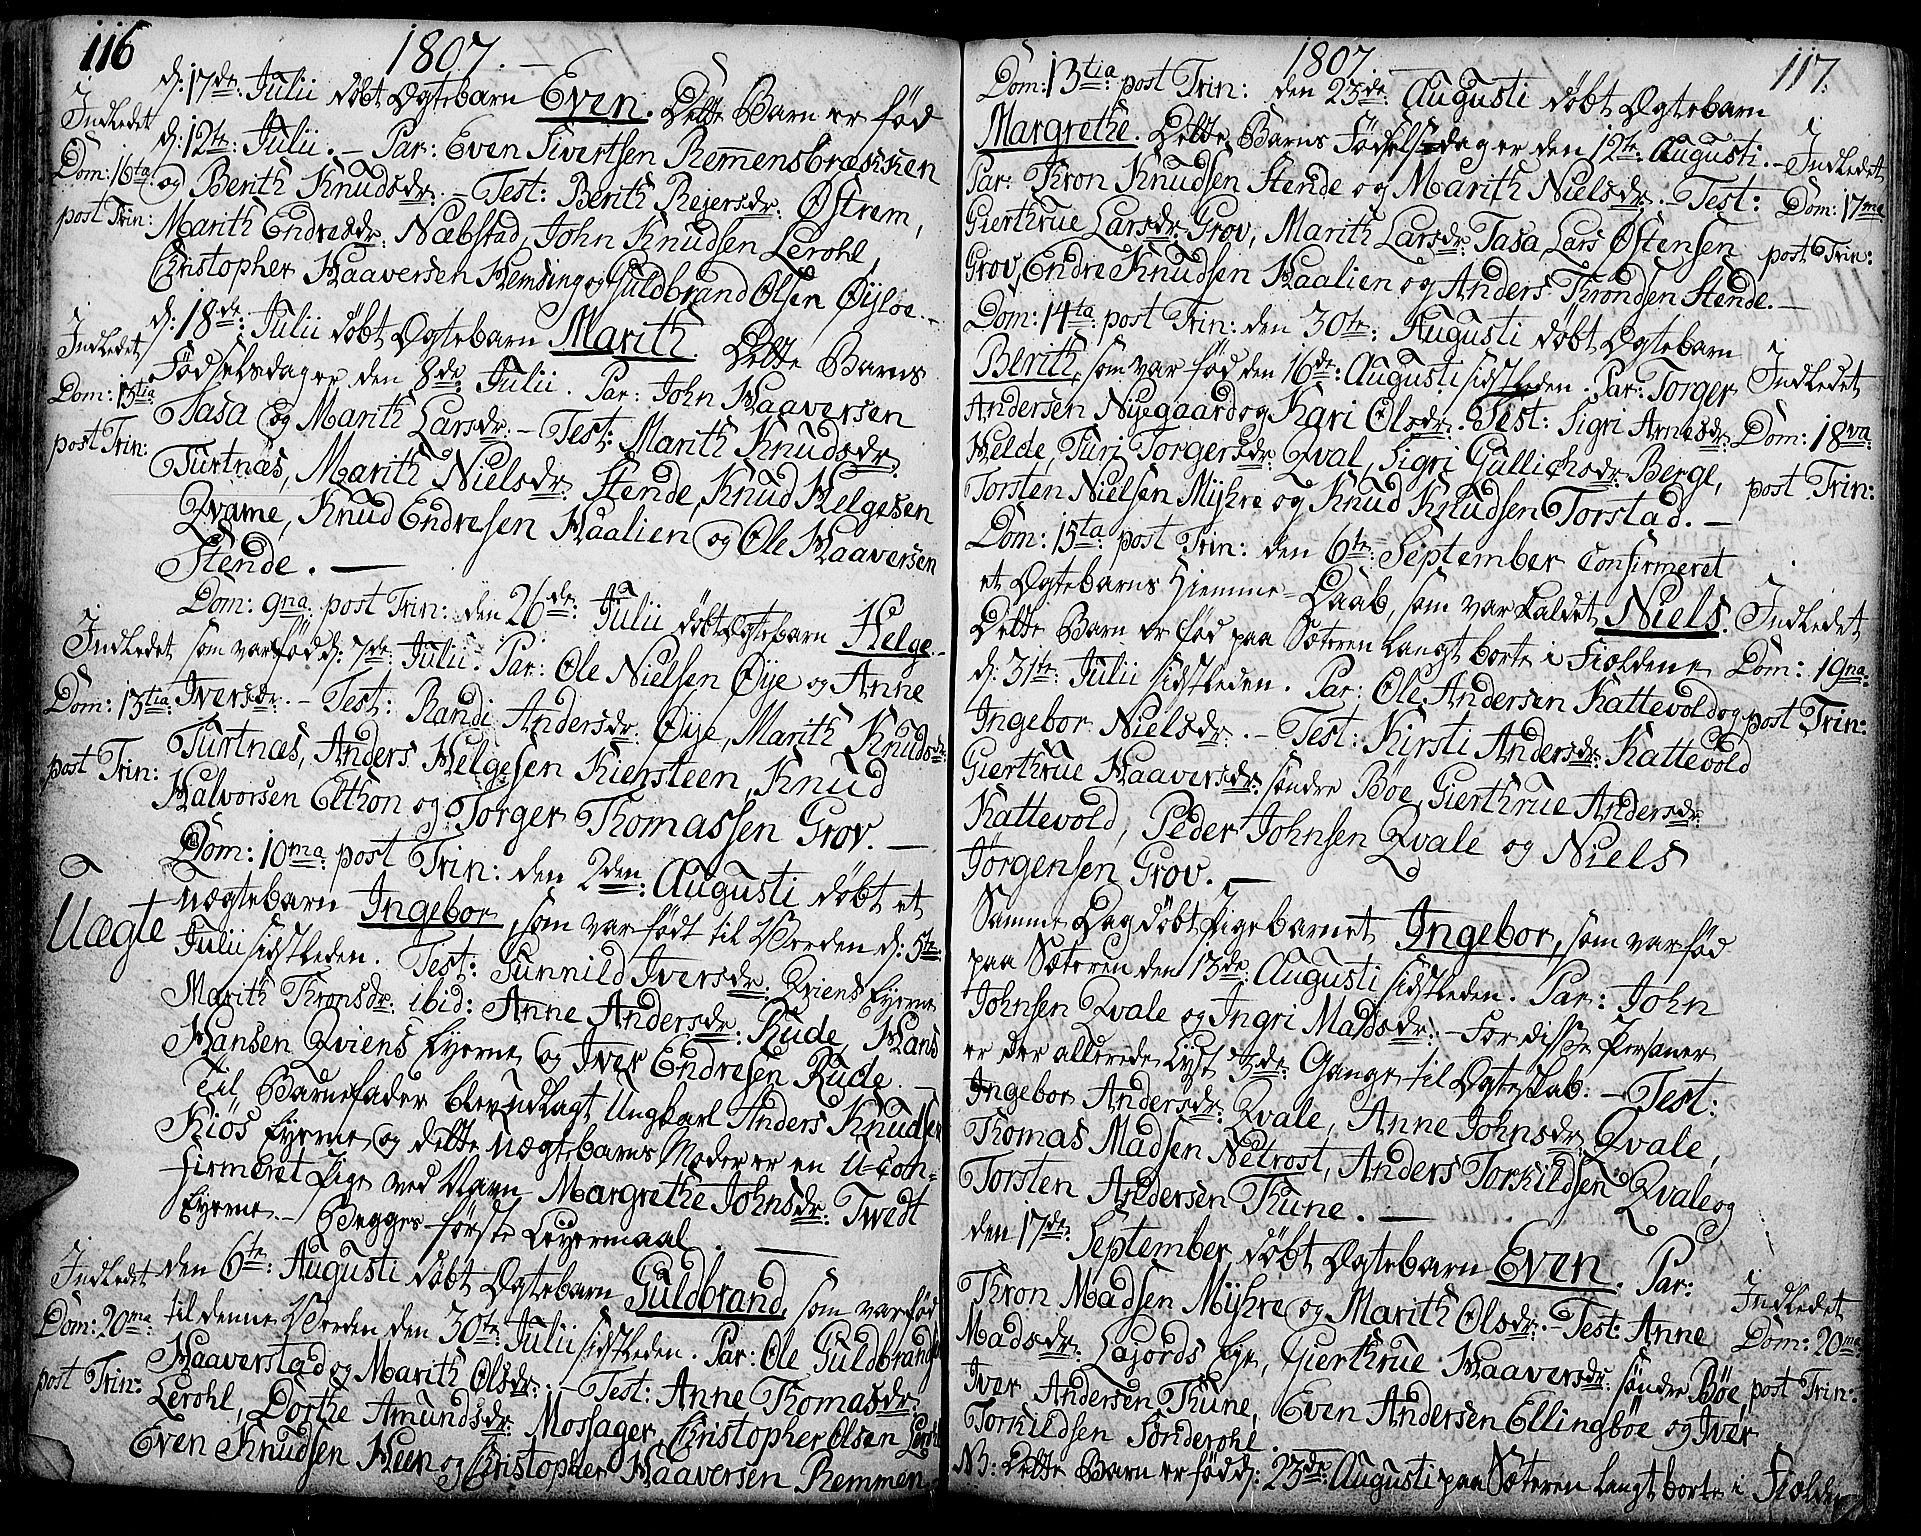 116
1807.
d: 17de: Julii døbt Ægtebarn Even. Dette Barn er fød
Indledet
d: 12te: Julii. – Par: Even Sivertsen Remmensbræcken
Dom: 16ta
og Berith Knudsdr: – Test: Berith Reiersdr: Østrem,
post Trin:
Marith Endresdr: Næbstad, John Knudsen Lerohl,
Christopher Haaversen Hemsing og Guldbrand Olsen Øyloe. –
d: 18de: Julii døbt Ægtebarn Marith. Dette Barns
Indledet
Fødselsdag er den 8de Julii. Par: John Haaversen
Dom: 13tia
Sasa og Marith Larsdr: – Test: Marith Knudsdr:
post Trin:
Turtnæs, Marith Nielsdr: Stende, Knud Helgesen
Qvame, Knud Endresen Haalien og Ole Haaversen
Stende. –
Dom: 9na post Trin: den 26de: Julii døbt Ægtebarn Helge
Indledet
som var fød d: 7de: Julii. Par: Ole Nielsen Øije og Anne
Dom: 13tia
Iversdr: – Test: Randi Andersdr: Øije, Marith Knudsdr:
post Trin:
Turtnæs, Anders Helgesen Kiersteen, Knud
Halvorsen Elthon og Torger Thomassen Grov. –
Dom: 10ma post Trin: den 2den: Augusti døbt et
Uægte
Uægtebarn Ingebor, som var født til Verden d: 5te
Julii sidstleden. Test: Sunnild Iversdr: Qviens Eyerne
Marith Thronsdr: ibid: Anne Andersdr: Rude, Hans
Hansen Qviens Eyerne og Iver Endresen Rude. –
Til Barnefader blev udlagt Ungkarl Anders Knudsen
Kiös Eyerne og dette Uægtebarns Moder er en U-con-
firmeret Pige ved Navn Margrethe Johnsdr: Twedt
Eyerne. – Begges første Leyermaal. –
den 6te: Augusti døbt Ægtebarn Guldbrand, som var fød
Indledet
til denne Verden den 30te: Julii sidstleden. Par: Ole Guldbrands
Dom: 20ma
Haaverstad og Marith Olsdr: – Test: Anne Thomasdr:
post Trin:
Lerohl, Dorthe Amundsdr: Mossager, Christopher Olsen Lerohl
Even Knudsen Heen og Christopher Haaversen Remmen
1807.
117.
Dom: 13tia post Trin: den 23de: Augusti døbt Ægtebarn
Margrethe. Dette Barns Fødselsdag er den 12te: Augusti. –
Indledet
Par: Thron Knudsen Stende og Marith Nielsdr: – Test:
Dom: 17me
Gierthrue Larsdr: Grov, Marith Larsdr: Sasa Lars Østensen
post Trin:
Grov, Endre Knudsen Haalien og Anders Throndsen Stende. –
Dom: 14ta: post Trin: den 30te: Augusti døbt Ægtebarn
Berith, som var fød den 16de: Augusti sidstleden. Par: Torger
Indledet
Andersen Nyegaard og Kari Olsdr: Test: Sigri Arnesdr:
Dom: 18va
Helde, Turi Torgersdr: Qval, Sigri Gullichsdr: Berge,
post Trin:
Torsten Nielsen Myhre og Knud Knudsen Torstad. –
Dom: 15ta: post Trin: den 6te: September confirmeret
et Ægtebarns Hiemme-Daab, som var kaldet Niels.
Indledet
Dette Barn er fød paa Sæteren langt borte i Fieldene
Dom: 19na
d: 31te: Julii sidstleden. Par: Ole Andersen Kattevold og
post Trin:
Ingebor Nielsdr: – Test: Kirsti Andersdr: Kattevold
Gierthrue Haaversdr: søndre Bøe, Gierthrue Andersdr:
Kattevold, Peder Johnsen Qvale og Niels
Jørgensen Grov. –
Samme Dag døbt Pigebarnet Ingebor, som var fød
paa Sæteren den 13de: Augusti sidstleden. Par: John
Johnsen Qvale og Ingri Madsdr: – For disse Personer
er der allerede lyst 3de: Gange til Ægteskab. – Test:
Ingebor Andersdr: Qvale, Anne Johnsdr: Qvale,
Thomas Madsen Netrost, Anders Torkildsen Qvale og
Torsten Andersen Thune. –
den 17de: September døbt Ægtebarn Even. Par:
Thron Madsen Myhre og Marith Olsdr: – Test: Anne
Indledet
Madsdr: Lajords Eye, Gierthrue Haaversdr: søndre Bøe,
Dom: 20ma
Iver Andersen Thune, Even Andersen Ellingbøe og Iver
post Trin:
Torkildsen Sønderohl.
NB: Dette Barn er fød d: 23de: Augusti paa Sæteren langt borte i Fieldene